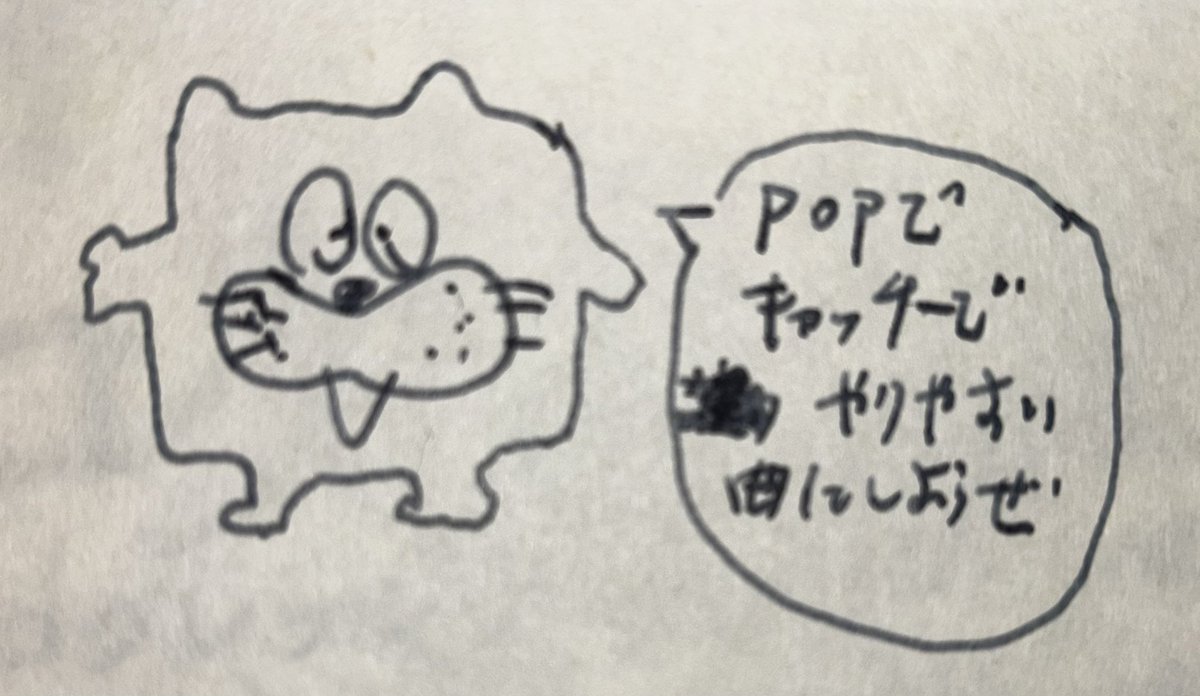 POPで
キャッチーで
やりやすい
曲にしようぜ